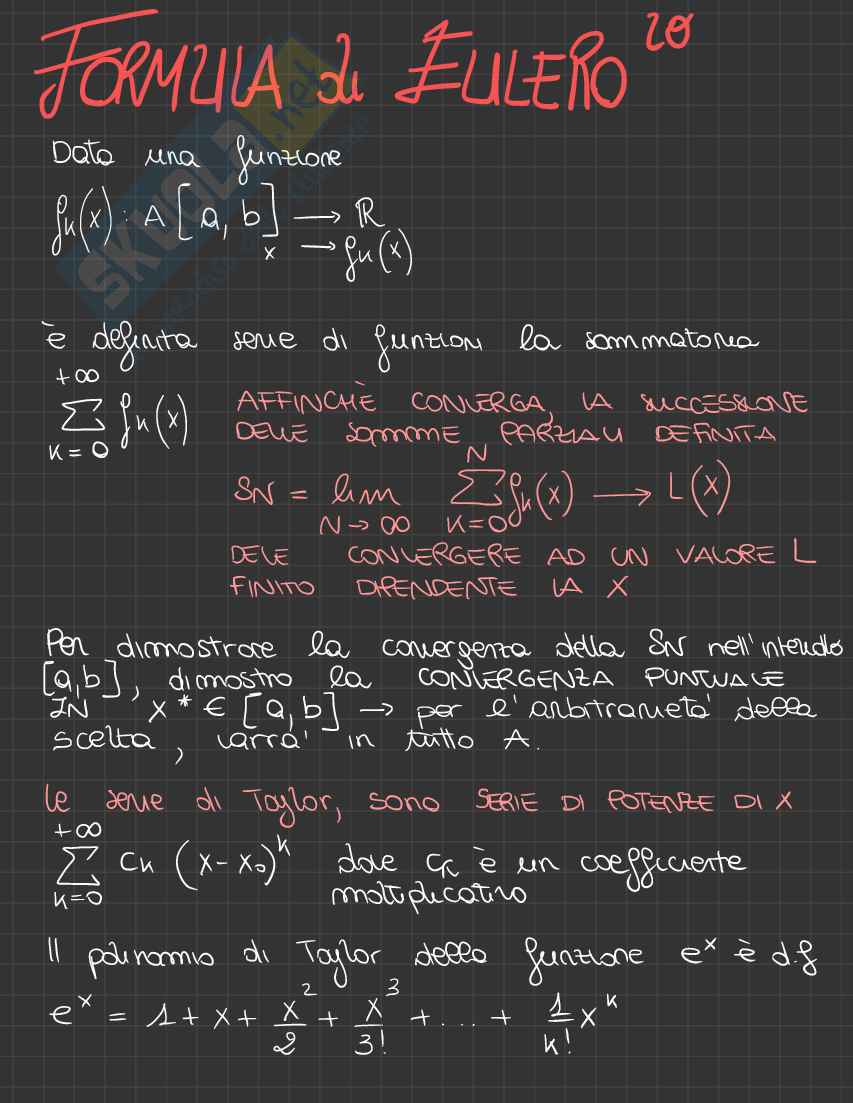 FORMULA di EULERO 20
Data una funzione
fk(x): A[a, b] → ℝ
x → fk(x)
è definita serie di funzioni la sommatoria
+∞
∑ fk(x)
K=0
AFFINCHÈ CONVERGA, LA SUCCESSIONE
DELLE SOMME PARZIALI DEFINITA
SN = lim N→∞ ∑ K=0 N fk(x) → L(x)
DEVE CONVERGERE AD UN VALORE L
FINITO DIPENDENTE DA X
Per dimostrare la convergenza della SN nell'intervallo
[a,b], dimostro la CONVERGENZA PUNTUALE
IN x* ∈ [a,b] → per l'arbitrarietà della
scelta, varrà in tutto A.
le serie di Taylor, sono SERIE DI POTENZE DI X
+∞
∑ Ck (x-x₀)^k dove Ck è un coefficiente
K=0 moltiplicativo
Il polinomio di Taylor della funzione e^x è d.f
e^x = 1 + x + x²/2 + x³/3! + ... + 1/k! x^k
SKUOLA.net